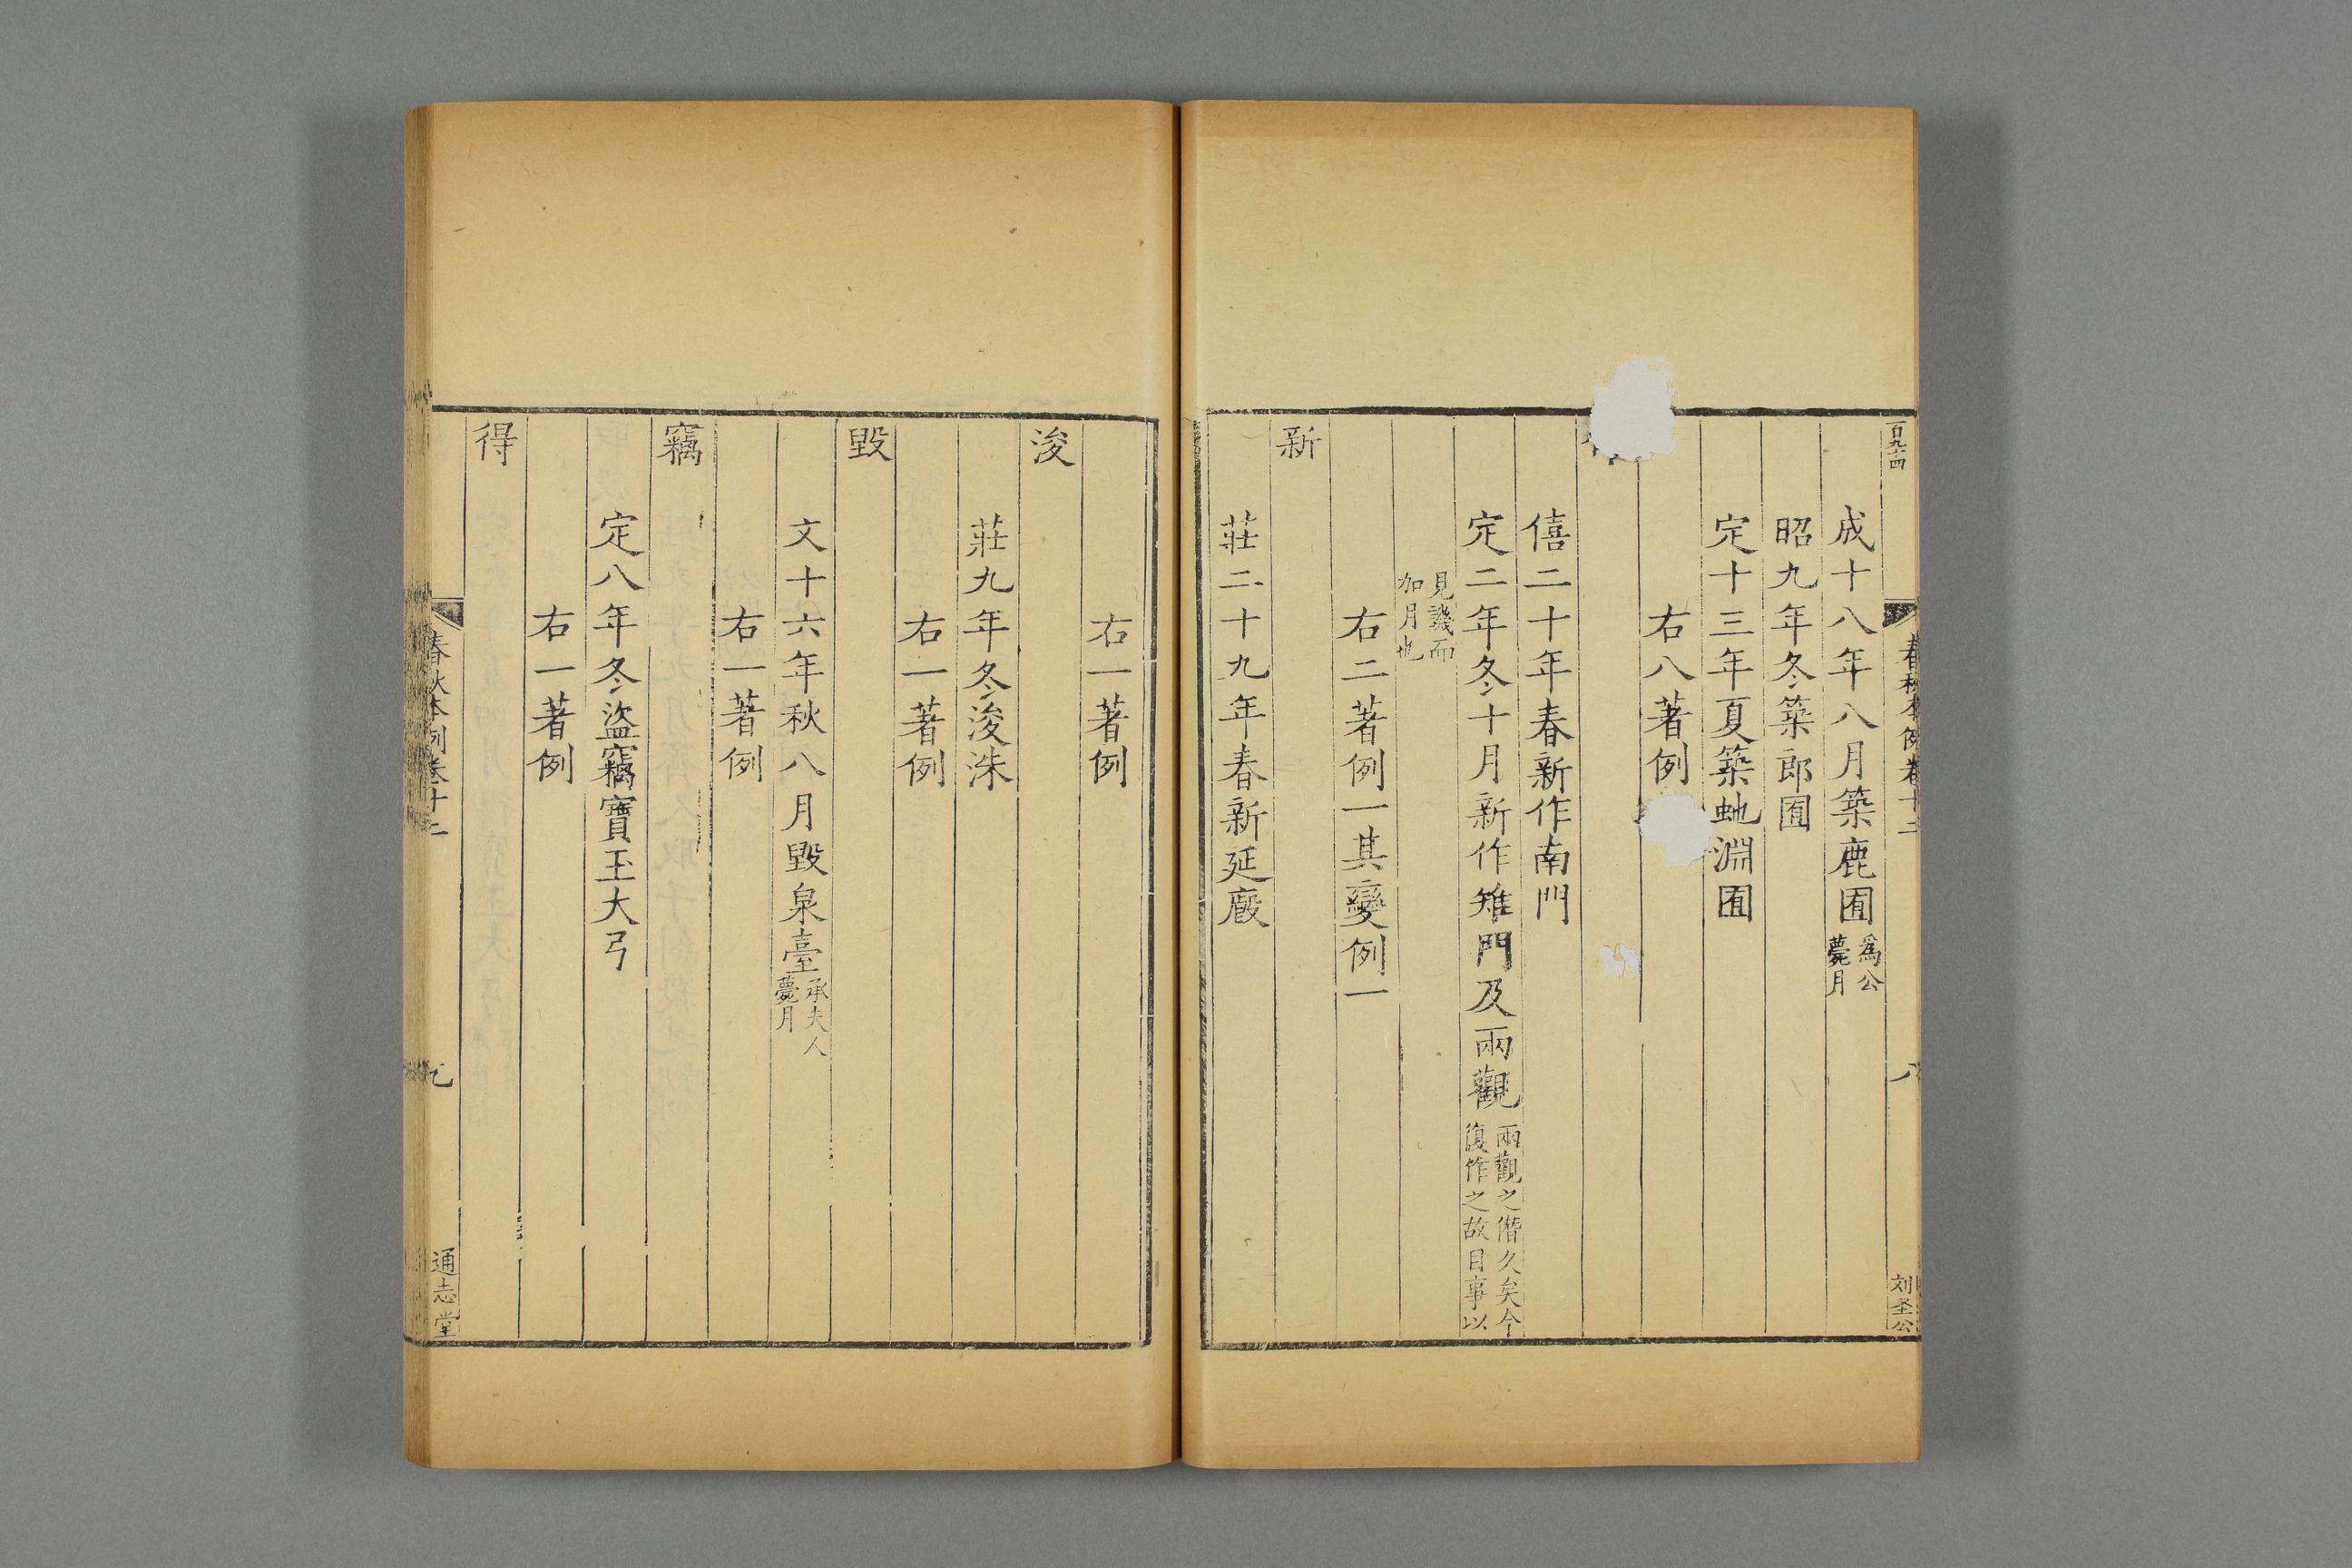 百九十四
春秋本例卷十二
八
刘圣公
成十八年八月築鹿囿爲公薨月
昭九年冬築郎囿
定十三年夏築虵淵囿
右八著例
僖二十年春新作南門
定二年冬十月新作雉門及兩觀兩觀之僭久矣今復作之故目事以
見譏而加月也
右二著例一其變例一
新
莊二十九年春新延廄
右一著例
浚
莊九年冬浚洙
右一著例
毀
文十六年秋八月毀泉臺承夫人薨月
右一著例
竊
定八年冬盜竊寶玉大弓
右一著例
得
春秋本例卷十二
九
通志堂